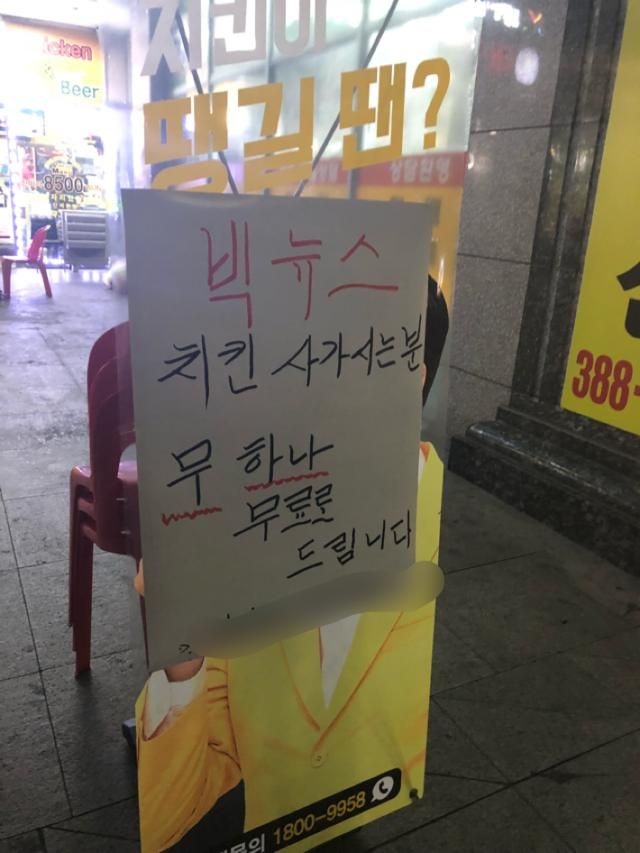 icken
Beer
8500
치킨이
땡길 땐?
상담환영
빅뉴스
치킨 사가시는분
무 하나
무료로
드립니다
388-
문의 1800-9958